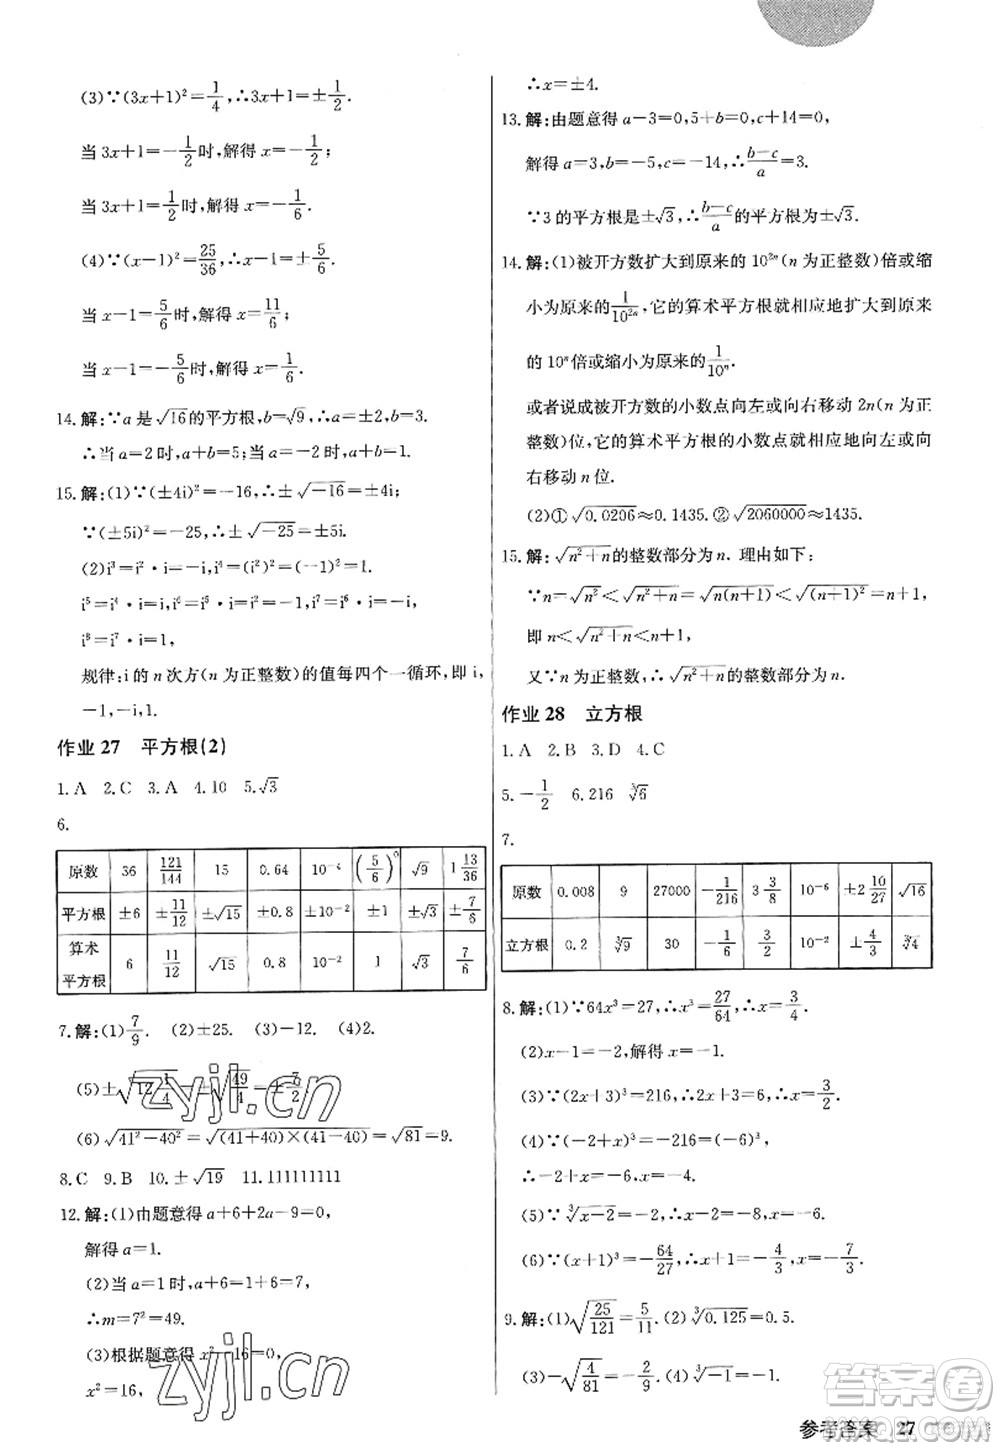 (3)∵(3x+1)²=1/4,∴3x+1=±1/2.
当 3x+1=-1/2时,解得 x=-1/2;
当 3x+1=1/2时,解得 x=-1/6.
(4)∵(x-1)²=25/36,∴x-1=±5/6.
当 x-1=5/6时,解得 x=11/6;
当 x-1=-5/6时,解得 x=1/6.
14.解:∵a 是√16的平方根,b=√9,∴a=±2,b=3.
∴当 a=2时,a+b=5;当 a=-2时,a+b=1.
15.解:(1)∵(±4i)²=-16,∴±√-16=±4i;
∵(±5i)²=-25,∴±√-25=±5i.
(2)i³=i²·i=-i,i⁴=i³·i=1,
i⁵=i⁴·i=i,i⁶=i⁵·i=-1,i⁷=i⁶·i=-i,
i⁸=i⁷·i=1,
规律:i的 n 次方(n 为正整数)的值每四个一循环,即 i,
-1,-i,1.
作业 27 平方根(2)
1.A 2.C 3.A 4.10 5.√3
6.
原数 36 121/144 15 0.64 10⁻⁴ (5/6)⁰ √9 1 13/36
平方根 ±6 ±11/12 ±√15 ±0.8 ±10⁻² ±1 ±√3 ±7/6
算术平方根 6 11/12 √15 0.8 10⁻² 1 √3 7/6
7.解:(1)7/9. (2)±25. (3)-12. (4)2.
(5)±√(12 1/4)=±√(49/4)=±7/2.
(6)√(41²-40²)=√((41+40)×(41-40))=√81=9.
8.C 9.B 10.±√19 11.111111111
12.解:(1)由题意得 a+6+2a-9=0,
解得 a=1.
(2)当 a=1时,a+6=1+6=7,
∴m=7²=49.
(3)根据题意得 x²-16=0,
x²=16,
∴x=±4.
13.解:由题意得 a-3=0,5+b=0,c+14=0,
解得 a=3,b=-5,c=-14,∴(b-c)/a=3.
∵3 的平方根是±√3,∴(b-c)/a的平方根为±√3.
14.解:(1)被开方数扩大到原来的 10²ⁿ(n 为正整数)倍或缩
小为原来的1/10²ⁿ,它的算术平方根就相应地扩大到原来
的 10ⁿ倍或缩小为原来的1/10ⁿ.
或者说成被开方数的小数点向左或向右移动 2n(n 为正
整数)位,它的算术平方根的小数点就相应地向左或向
右移动 n 位.
(2)①√0.0206≈0.1435.②√2060000≈1435.
15.解:√(n²+n)的整数部分为 n. 理由如下:
∵n=√n²<√(n²+n)=√(n(n+1))<√((n+1)²)=n+1,
即 n<√(n²+n)<n+1.
又∵n 为正整数,∴√(n²+n)的整数部分为 n.
作业 28 立方根
1.A 2.B 3.D 4.C
5.-1/2 6.216 ∛6
7.
原数 0.008 9 27000 -1/216 3 3/8 10⁻⁶ ±2 10/27 √16
立方根 0.2 ∛9 30 -1/6 3/2 10⁻² ±4/3 ∛4
8.解:(1)∵64x³=27,∴x³=27/64,∴x=3/4.
(2)x-1=-2,解得 x=-1.
(3)∵(2x+3)³=216,∴2x+3=6,∴x=3/2.
(4)∵(-2+x)³=-216=(-6)³,
∴-2+x=-6,x=-4.
(5)∵∛(x-2)=-2,∴x-2=-8,∴x=-6.
(6)∵(x+1)³=-64/27,∴x+1=-4/3,∴x=-7/3.
9.解:(1)√(25/121)=5/11. (2)∛0.125=0.5.
(3)-√(4/81)=-2/9. (4)∛-1=-1.
参考答案 27
zyjl.cn
zyjl.cn
答案圈